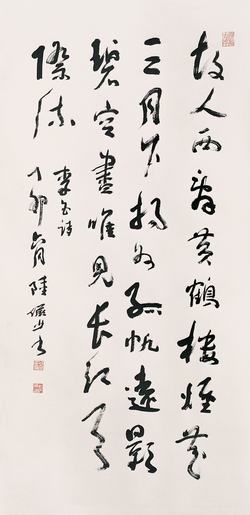 故人西辭黃鶴樓煙花
三月下揚州孤帆遠影
碧空盡唯見長江天
際流
李白詩
丁卯 陸儼少書